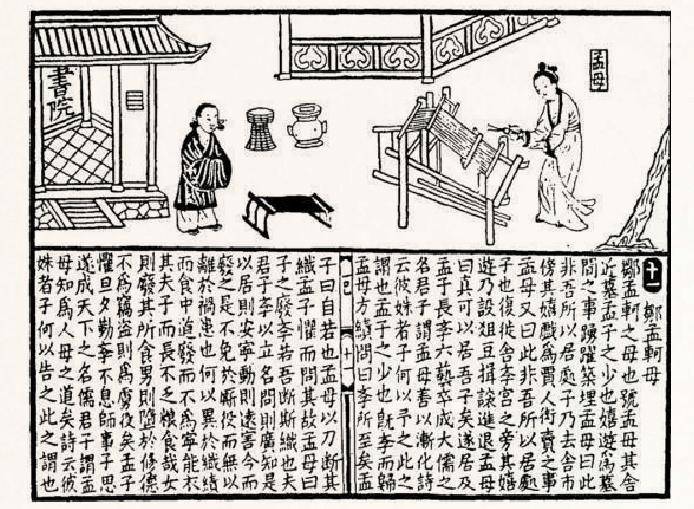 書院
孟母
十一
鄒孟軻母
鄒孟軻之母也號孟母其舍
近墓孟子之少也嬉遊爲墓
間之事踴躍築埋孟母曰此
非吾所以居處子乃去舍市
傍其嬉戲爲賈人衒賣之事
孟母又曰此非吾所以居處
子也復徙舍斈宮之旁其嬉
遊乃設俎豆揖讓進退孟母
曰真可以居吾子矣遂居及
孟子長斈六藝卒成大儒之
名君子謂孟母善以漸化詩
云彼姝者子何以予之此之
謂也孟子之少也旣斈而歸
孟母方績問曰斈所至矣孟
子曰自若也孟母以刀斷其
織孟子懼而問其故孟母曰
子之廢斈若吾斷斯織也夫
君子斈以立名問則廣知是
以居則安寧動則遠害今而
廢之是不免於廝役而無以
離於禍患也何以異於織績
而食中道廢而不爲寧能衣
其夫子而長不乏粮食哉女
則廢其所食男則墮於修德
不爲竊盜則爲虜役矣孟子
懼旦夕勤斈不息師事子思
遂成天下之名儒君子謂孟
母知爲人母之道矣詩云彼
姝者子何以告之此之謂也